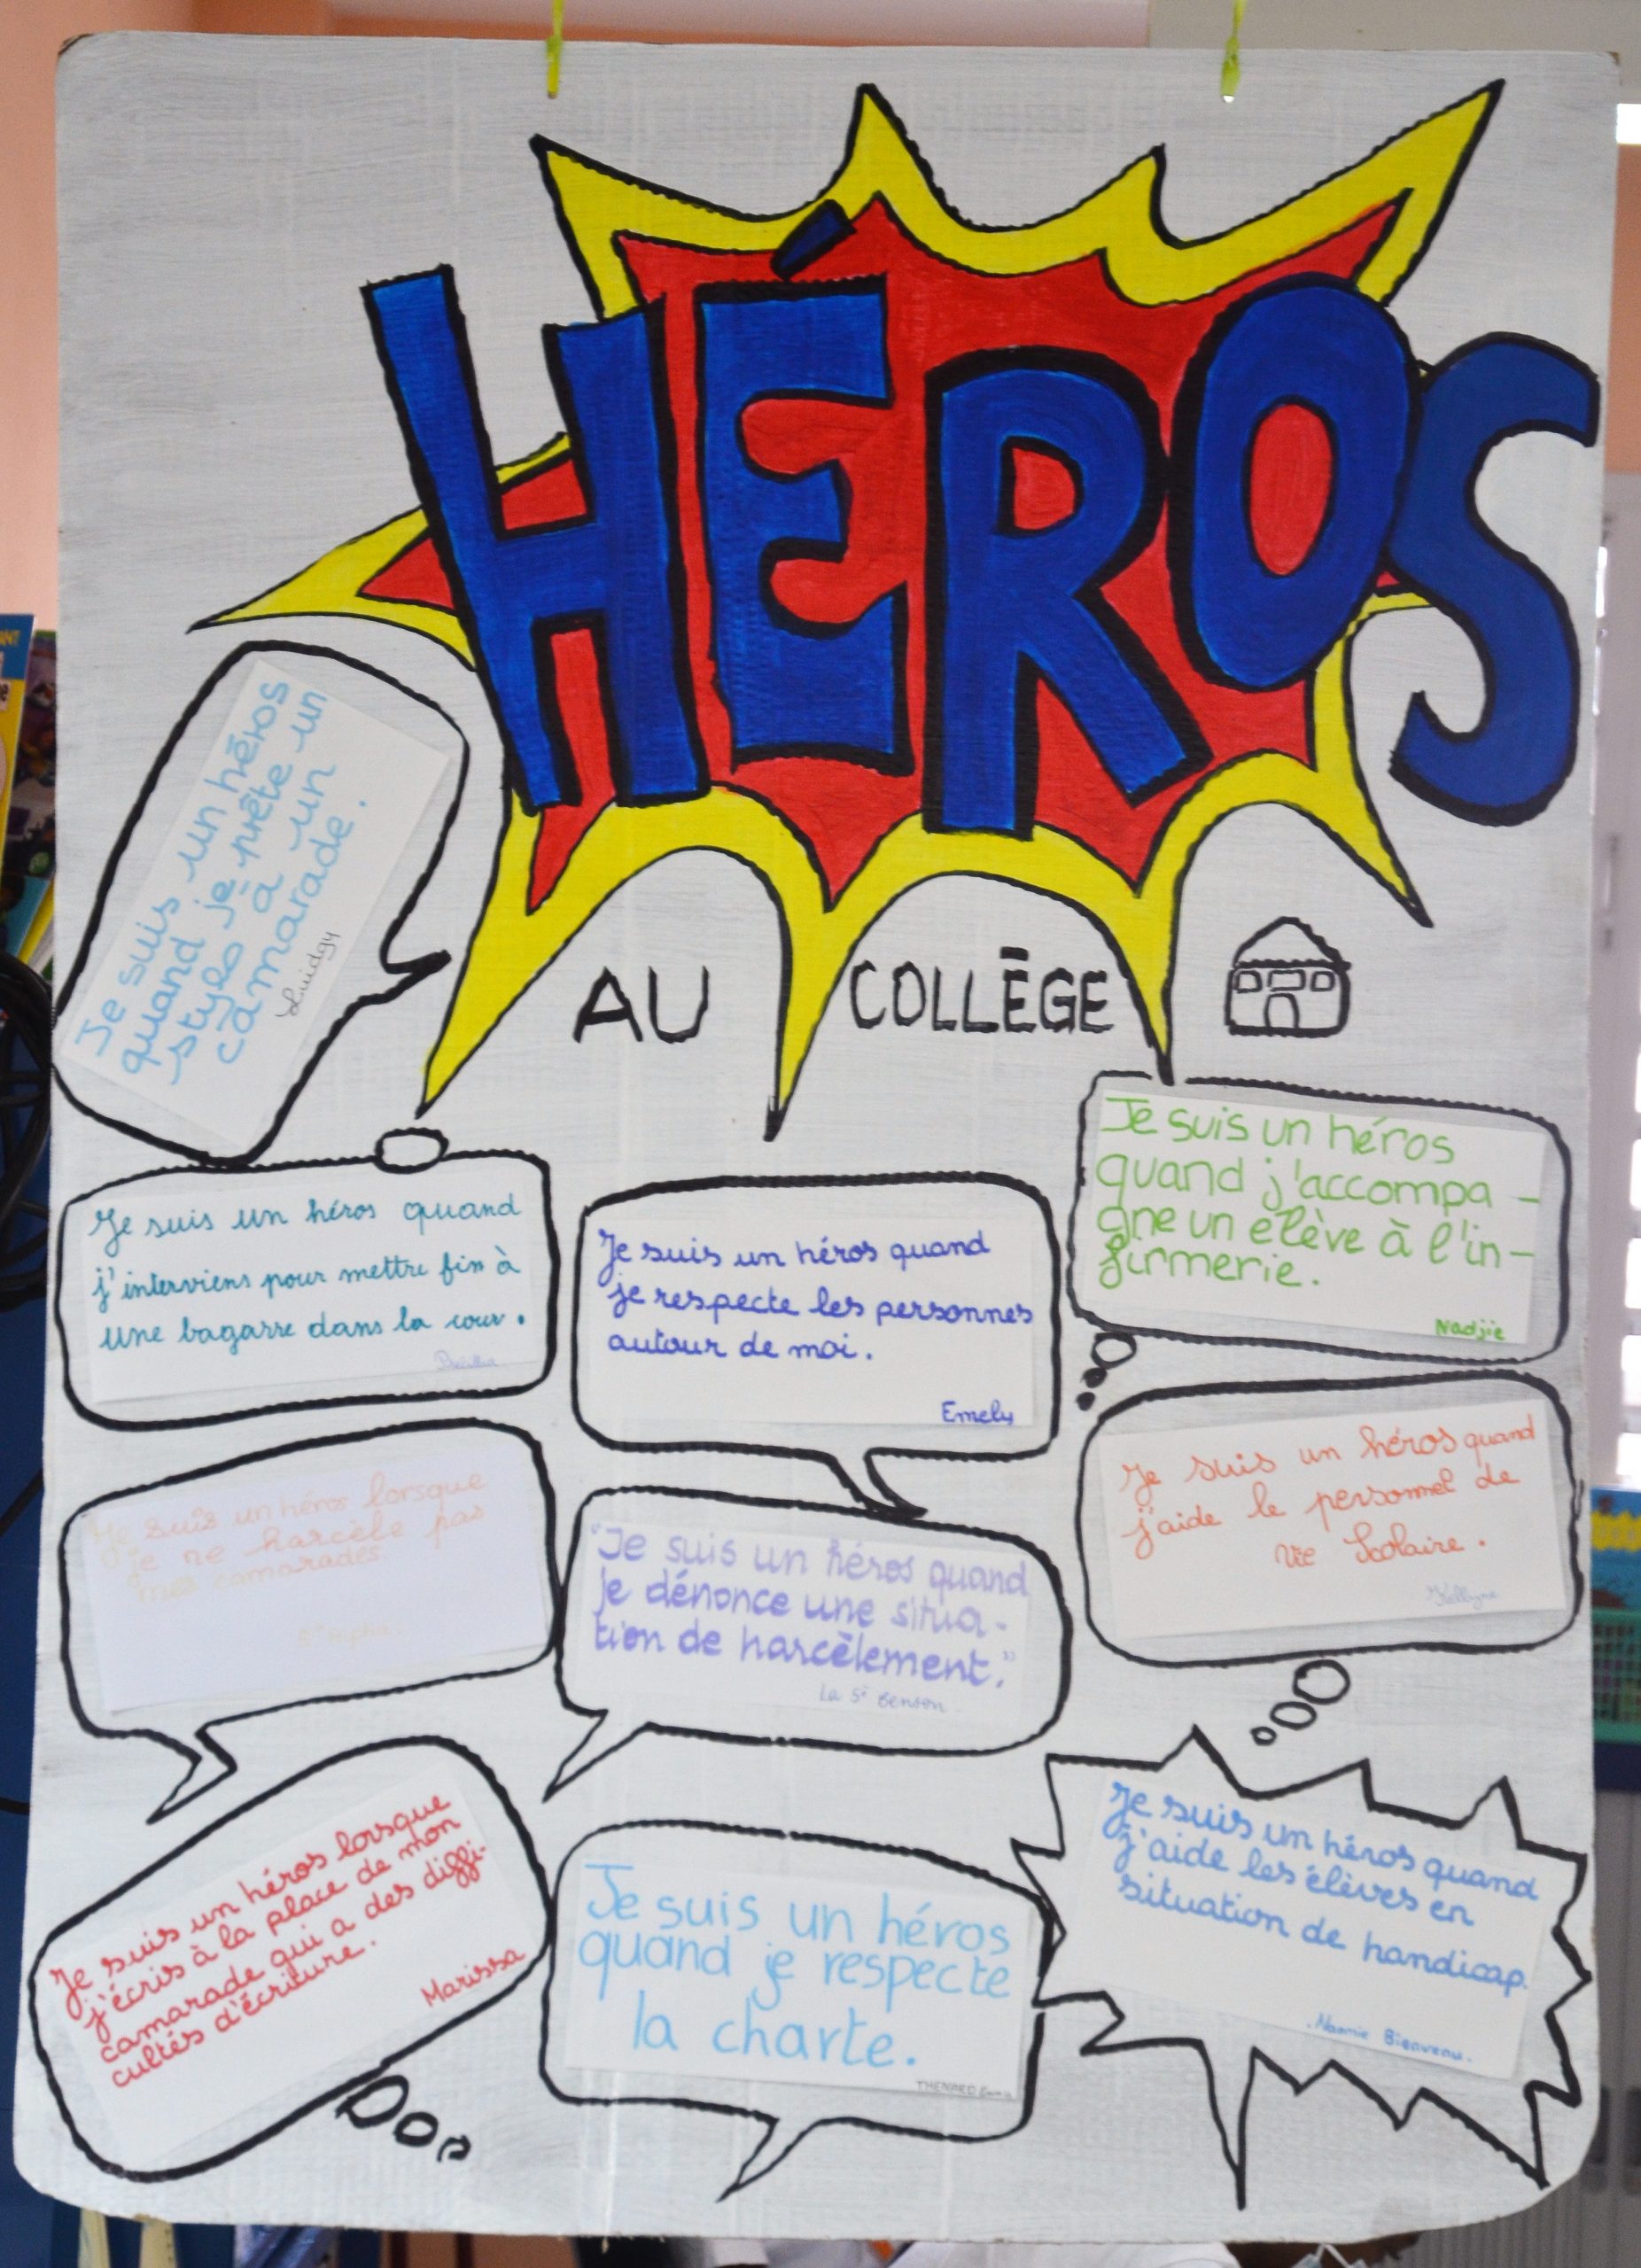 HÉROS
AU COLLÈGE
Je suis un héros
quand je prête un
stylo à un
camarade.
Luidgy
Je suis un héros quand
j'interviens pour mettre fin à
une bagarre dans la cour.
Je suis un héros quand
je respecte les personnes
autour de moi.
Emely
Je suis un héros
quand j'accompa-
gne un élève à l'in-
firmerie.
Nadjie
Je suis un héros lorsque
je ne harcèle pas
mes camarades
"Je suis un héros quand
je dénonce une situa-
tion de harcèlement."
La 5e Benson
Je suis un héros quand
j'aide le personnel de
Vie Scolaire.
Kellyna
Je suis un héros lorsque
j'écris à la place de mon
camarade qui a des diffi-
cultés d'écriture.
Marissa
Je suis un héros
quand je respecte
la charte.
THENARD
Je suis un héros quand
j'aide les élèves en
situation de handicap.
Naomie Bienvenu.